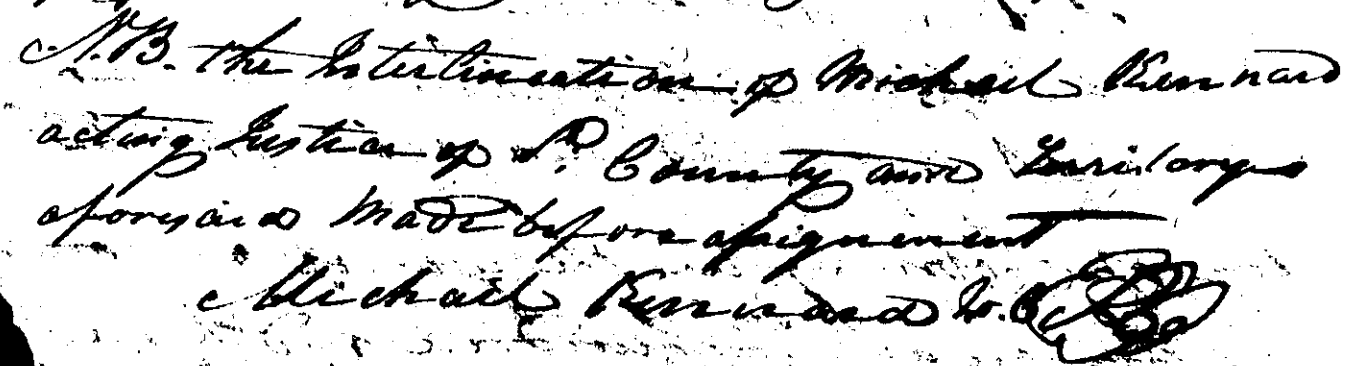 N.B. the Interlineation of Michael Kennard
acting Justice of Sd. County and Territory
aforesaid Made before assignement
Michael Kennard